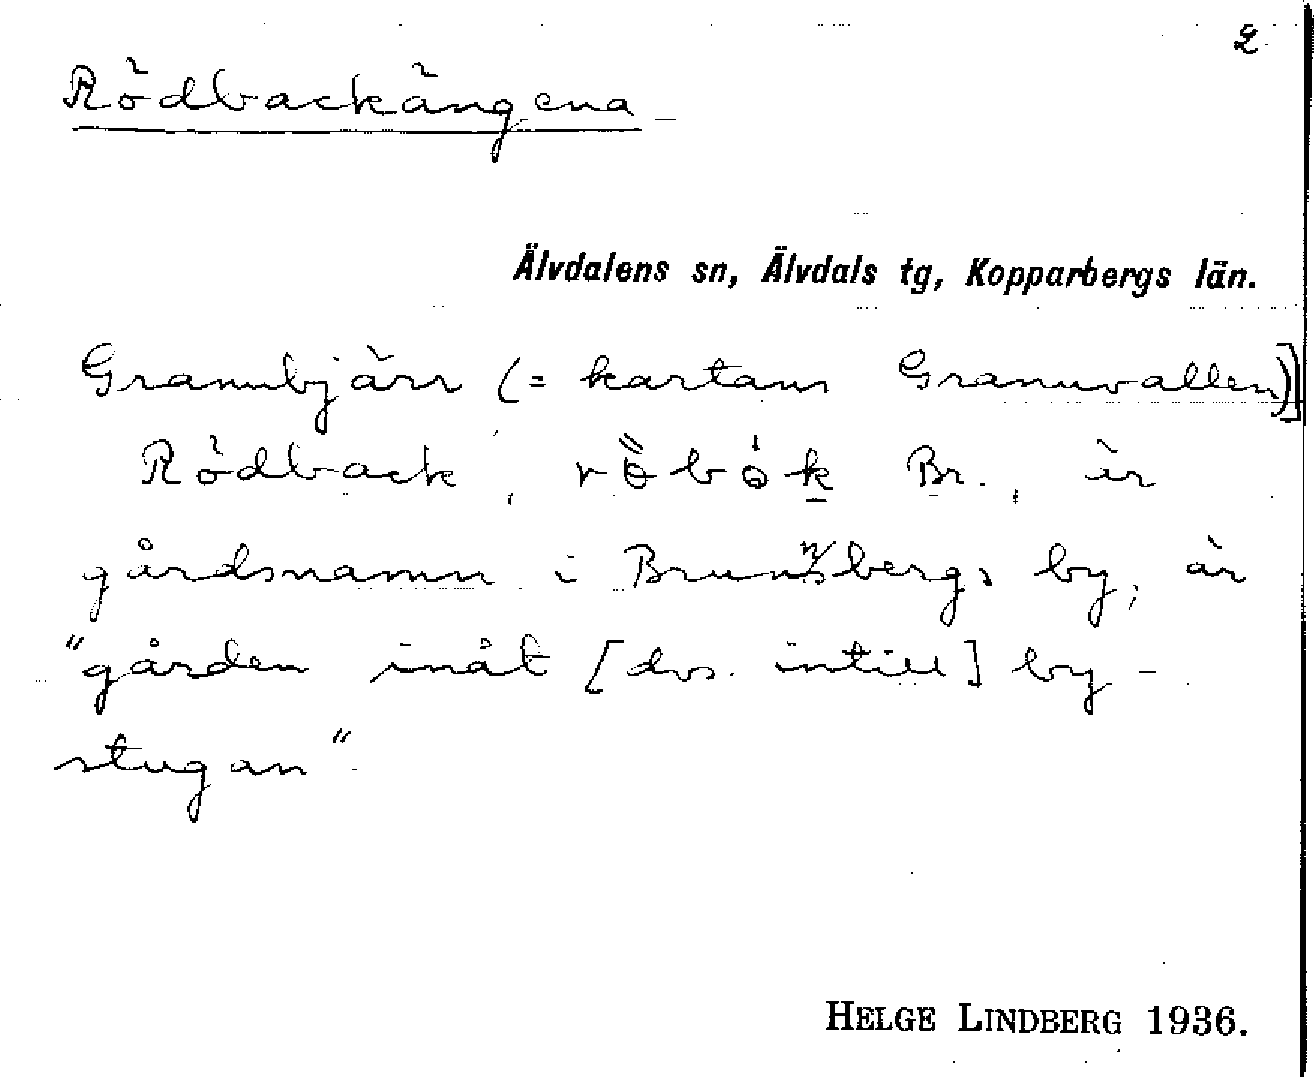 2
Rödbackängena
Älvdalens sn, Älvdals tg, Kopparbergs län.
Grannbjärr (= kartans Granuvallen)]
Rödback, Br., är
gårdsnamn i Brunnsbergs by, är
"gården inåt [dvs. intill] by-
stugan".
HELGE LINDBERG 1936.